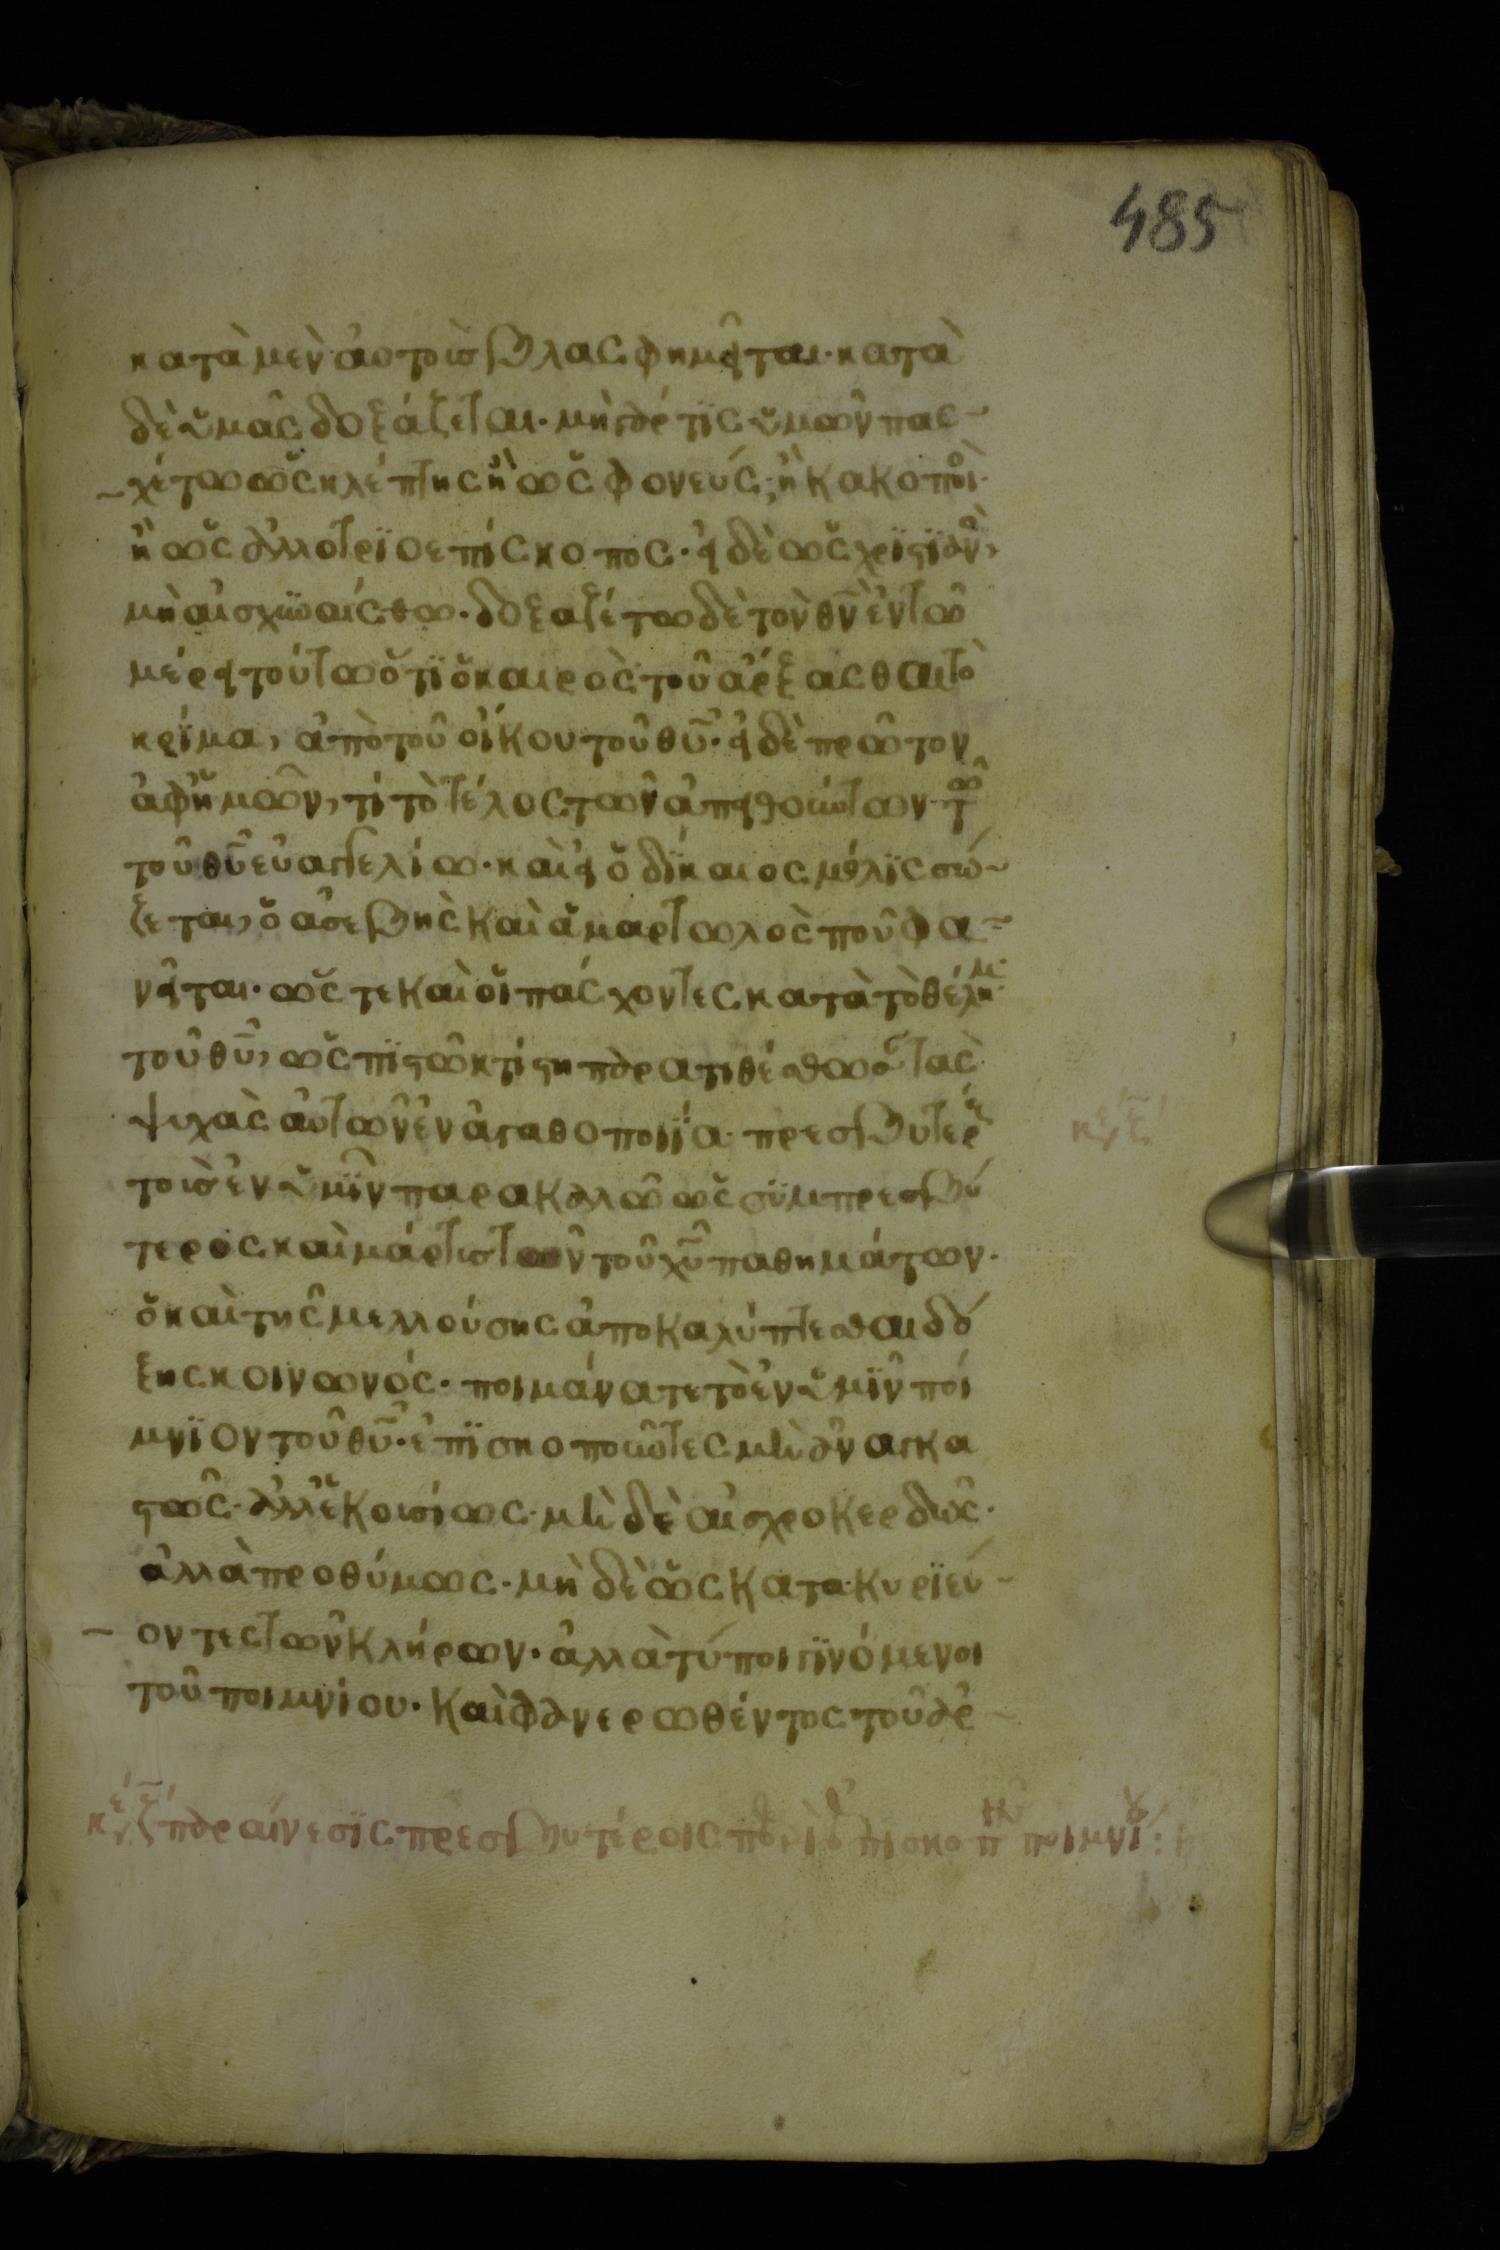 485
κατὰ μὲν ἀυτοὶς βλασφημεῖται· κατὰ
δὲ ὑμᾶς δοξάζεται· μὴ γάρ τις ὑμῶν πασ
χέτω ὡς κλέπτης ἢ ὡς φονεύς, ἢ κακοποι
ἢ ὡς ἀλλοτριοεπίσκοπος· εἰ δὲ ὡς χριστιανὸ,
μὴ αἰσχυναίσθω· δοξαζέτω δὲ τὸν θν ἐν τῶ
μέρει τούτω ὅτι ὁ καιρὸς τοῦ ἀρξασθαι τὸ
κρίμα, ἀπὸ τοῦ οἴκου τοῦ θυ· εἰ δὲ πρῶτον
ἀφ ἡμῶν, τί τὸ τέλος τῶν ἀπειθούντων τῶ
τοῦ θυ εὐαγγελίω· καὶ εἰ ὁ δίκαιος μόλις σώ
ζεται, ὁ ἀσεβὴς καὶ ἁμαρτωλὸς ποῦ φα
νεῖται· ὥς τε καὶ οἱ πάσχοντες κατὰ τὸ θέλημ
τοῦ θυ, ὡς πιστῶ κτίστη παρατιθέσθωσ τὰς
ψυχὰς ἀυτῶν ἐν ἀγαθοποιΐα· πρεσβυτέρ
τοὶς ἐν ὑμῖν παρακαλῶ ὡς συμπρεσβύ
τερος καὶ μάρτις τῶν τοῦ χυ παθημάτων·
ὁ καὶ τῆς μελλούσης ἀποκαλύπτεσθαι δό
ξης κοινωνός· ποιμάνατε τὸ ἐν ὑμῖν ποί
μνιον τοῦ θυ· ἐπισκοποῦντες μὴ ἀναγκα
στῶς· ἀλλ ἑκουσίως· μὴ δὲ αἰσχροκερδῶς·
ἀλλὰ προθύμως· μὴ δὲ ὡς κατακυριεύ
οντες τῶν κλήρων· ἀλλὰ τύποι γινόμενοι
τοῦ ποιμνίου· καὶ φανερωθέντος τοῦ ἀρ
κε ζ παραίνεσις πρεσβυτέροις